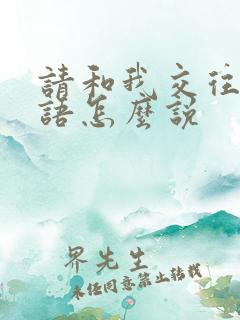 請和我交往
語怎麼説
界先生
未經同意禁止轉載